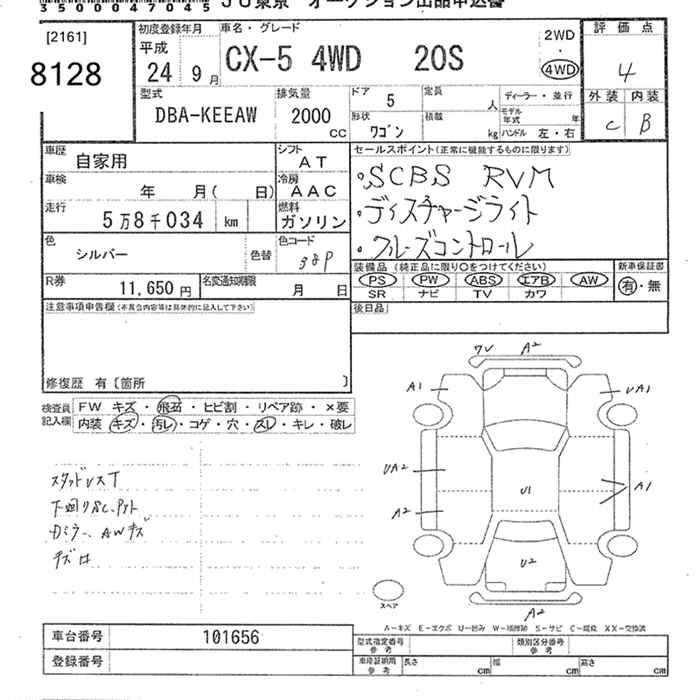 35000047045 JU東京 オークション出品申込書
[2161]
8128
初度登録年月
平成
24 9月
車名・グレード
CX-5 4WD 20S
2WD
・
4WD
評価点
4
外装 内装
C B
型式
DBA-KEEAW
排気量
2000
cc
ドア
5
定員
人
ディーラー・並行
形状
ワゴン
積載
kg
モデル年式
年
ハンドル 左・右
車歴
自家用
シフト
AT
車検
年 月( 日)
冷房
AAC
走行
5万8千034 km
燃料
ガソリン
色
シルバー
色替
色コード
38P
R券
11,650円
名変通知期限
月 日
セールスポイント(正常に機能するものに限ります)
・SCBS RVM
・ディスチャージライト
・クルーズコントロール
装備品(純正品に限り○をつけてください)
PS PW ABS エアB AW
SR ナビ TV カワ
新車保証書
有・無
注意事項申告欄(不具合内容等は具体的に記入して下さい)
後日品
修復歴 有〔箇所 〕
検査員記入欄
FW キズ・飛石・ヒビ割・リペア跡・×要
内装 キズ・汚レ・コゲ・穴・スレ・キレ・破レ
スタッドレスT
下回りSC、Pット
カミラー、AWキズ
ワレ A2
A1 UA1
UA2
A2
U1
A1
U2
スペア
A2
A-キズ E-エクボ U-凹み W-補修跡 S-サビ C-腐食 XX-交換済
車台番号 101656
登録番号
型式指定番号 参考
類別区分番号 参考
車庫証明用 参考
長さ cm
幅 cm
高さ cm